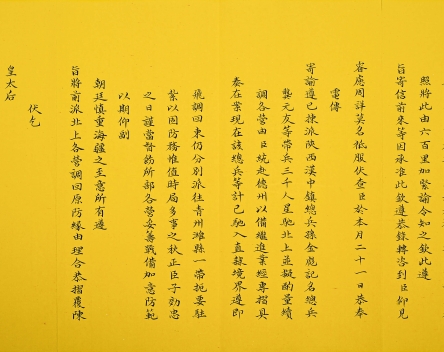 照將此由六百里加緊諭令知之欽此遵
旨寄信前來等因承准此欽遵恭錄轉咨到臣仰見
睿慮周詳莫名祗服伏查臣於本月二十一日恭奉
電傳
寄諭遵已揀派陝西漢中鎮總兵孫金彪記名總兵
龔元友等帶兵三千人星馳北上並擬酌量續
調各營由臣統赴德州以備繼進業經專摺具
奏在案現在該總兵等計已馳入直隸境界遵即
飛調回東仍分別派往青州濰縣一帶扼要駐
紮以固防務惟值時局多事之秋正臣子効忠
之日謹當督飭所部各營妥善戰備加意防範
以期仰副
朝廷慎重海疆之至意所有遵
旨將前派北上各營調回原防緣由理合恭摺覆陳
伏乞
皇太后